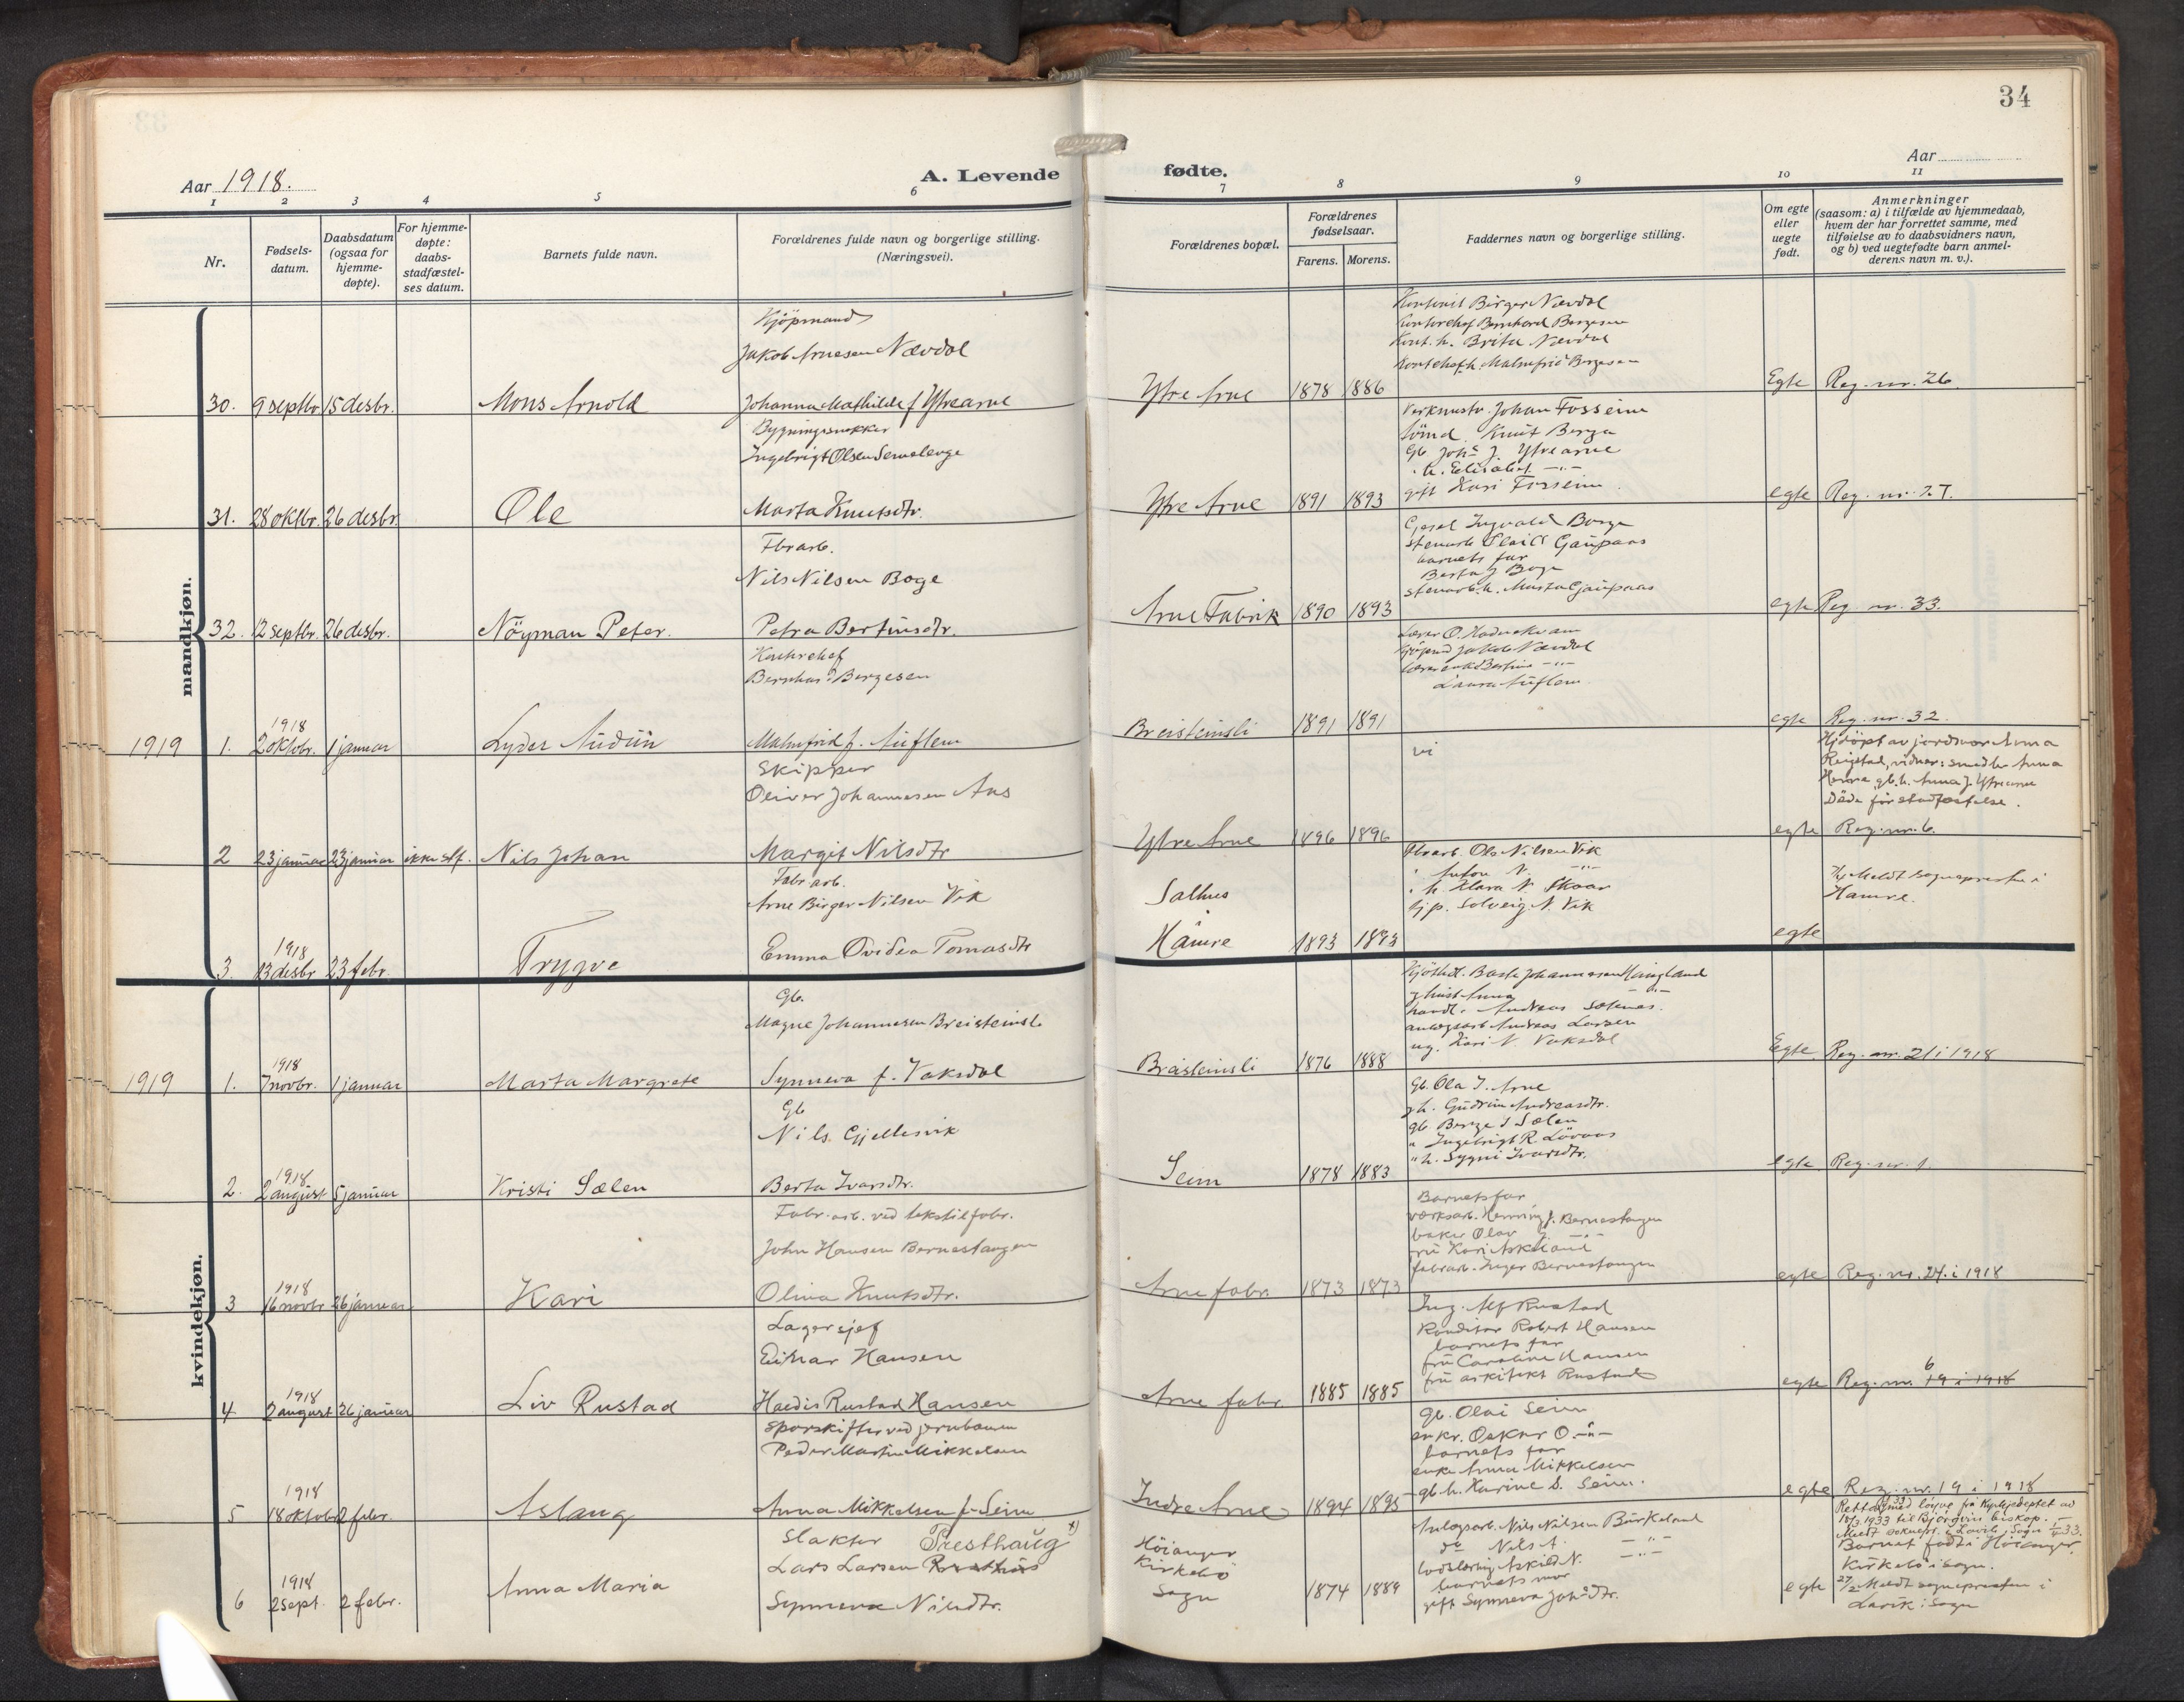 34
Aar 1918.
A. Levende
fødte.
Aar
1 2 3 4 5 6 7 8 9 10 11
Nr.
Fødsels-
datum.
Daabsdatum
(ogsaa for
hjemme-
døpte).
For hjemme-
døpte:
daabs-
stadfæstel-
ses datum.
Barnets fulde navn.
Forældrenes fulde navn og borgerlige stilling.
(Næringsvei).
Forældrenes bopæl.
Forældrenes
fødselsaar.
Farens. Morens.
Faddernes navn og borgerlige stilling.
Om egte
eller
uegte
født.
Anmerkninger
(saasom: a) i tilfælde av hjemmedaab,
hvem der har forrettet samme, med
tilføielse av to daabsvidners navn,
og b) ved uegtefødte barn anmel-
derens navn m. v.).
mandkjøn.
Kjöpmand
Jakob Arnesen Nævdal
30. 9 septbr. 15 desbr. Mons Arnold Johanna Mathilde f Ytrearne
Birger Nævdal
Bernhard Borgesen
Brita Nævdal
Malmfrid Borgesen
Ytre Arne 1878 1886 Egte Reg. nr. 26.
Bygningssnekker
Ingebrigt Olsen
31. 28 oktbr. 26 desbr. Ole Marta Knutsdtr.
Johan Fosseim
Knut Berge
gb. Johs J. Ytrearne
" h. Elisabet —"—
gift Kari Fosseim
Ytre Arne 1891 1893 egte Reg. nr. 27.
Fbrarb.
Nils Nilsen Boge
32. 12 septbr. 26 desbr. Nöyman Peter. Petra Bertinsdtr.
Ingvald Boge
Gaupaas
barnets far
Berta J Boge
stenarb. h. Marta Gaupaas
Arne Fabrik 1890 1893 egte Reg. nr. 33.
Kontorchef
Bernhard Borgesen
1918
1919 1. 2 oktbr. 1 januar Lyder Audun Malmfrid f. Auflem
Jakob Nævdal
Laura Auflem
Breisteinsli 1891 1891 egte Reg. nr. 32.
Skipper
Oliver Johannesen Aas
2 23 januar 23 januar ikke stf. Nils Johan Margit Nilsdtr
Hjdöpt av jordmor Anna
Reigstad, vidner: smed h. Anna
Herre, gb. h. Anna J. Ytrearne
Döde för stadfestelse.
Ytre Arne 1896 1896 egte Reg. nr. 6.
Fabr. arb.
Arne Birger Nilsen Vik
1918
3. 13 desbr 23 febr. Trygve Emma Ovidea Tomasdtr
Fbrarb. Ole Nilsen Vik
" Anton N. —"—
" h. Klara N. Skaar
Solveig N. Vik
Salhus
Hamre 1893 1893 egte
Meldt sognepresten i
Hamre.
kvindekjøn.
Gb.
Magne Johannesen Breisteinsl.
1918
1919 1. 7 novbr. 1 januar Marta Margrete Synneva f. Vaksdal
Johannesen Haugland
Andreas
Andreas Larsen
ug. Kari N. Vaksdal
Breisteinsli 1876 1888 Egte Reg. nr. 21 i 1918
Gb
Nils Gjellesvik
1918
2. 2 august 5 januar Kristi Sælen Berta Ivarsdtr.
Gb. Ola J. Arne
g h. Gudrun Andreasdtr.
gb. Berge J Sælen
" Ingebrigt R. Lövaas
" h. Sygni Ivarsdtr.
Seim 1878 1883 egte Reg. nr. 1.
Fabr. arb. ved tekstilfabr.
John Hansen Bernestangen
1918
3 16 novbr 26 januar Kari Olina Knutsdtr.
Barnets far
værksarb. Henning J. Bernestangen
baker Olav J. —"—
fru Kari Askeland
fabrarb. Inger Bernestangen
Arne fabr. 1873 1873 egte Reg. nr. 24. i 1918
Lagersjef
Einar Hansen
1918
4 2 august 26 januar Liv Rustad Hædis Rustad Hansen
Ing. Alf Rustad
Konditor Robert Hansen
barnets far
fru Caroline Hansen
fru arkitekt Rustad
Arne fabr. 1885 1885 egte Reg. nr. 6 19 i 1918
Sporskifter ved jernbanen
Peder Martin Mikkelsen
1918
5 18 oktobr 2 febr. Aslaug Anna Mikkelsen f. Seim
gb. Olai Seim
Oskar O. —"—
barnets far
enke Anna Mikkelsen
gb. h. Karine S. Seim.
Indre Arne 1894 1895 egte Reg. nr. 19 i 1918
Slakter Presthaug x)
Lars Larsen
1918
6 2 sept. 2 febr. Anna Maria Synneva Nilsdtr.
Anlegsarb. Nils Nilsen Birkeland
do Nils A. —"—
Askild N. —"—
barnets mor
gift Synneva Johsdtr.
Höianger
Kirkebö
Sogn 1874 1889 egte
til Björgvin biskop.
Barnet födt i Höianger,
Kirkebö i Sogn.
27/2 Meldt sognepresten i
Lavik i Sogn